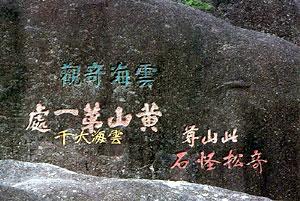 雲海奇觀
黃山第一處
雲海大千
此山尊
奇松怪石